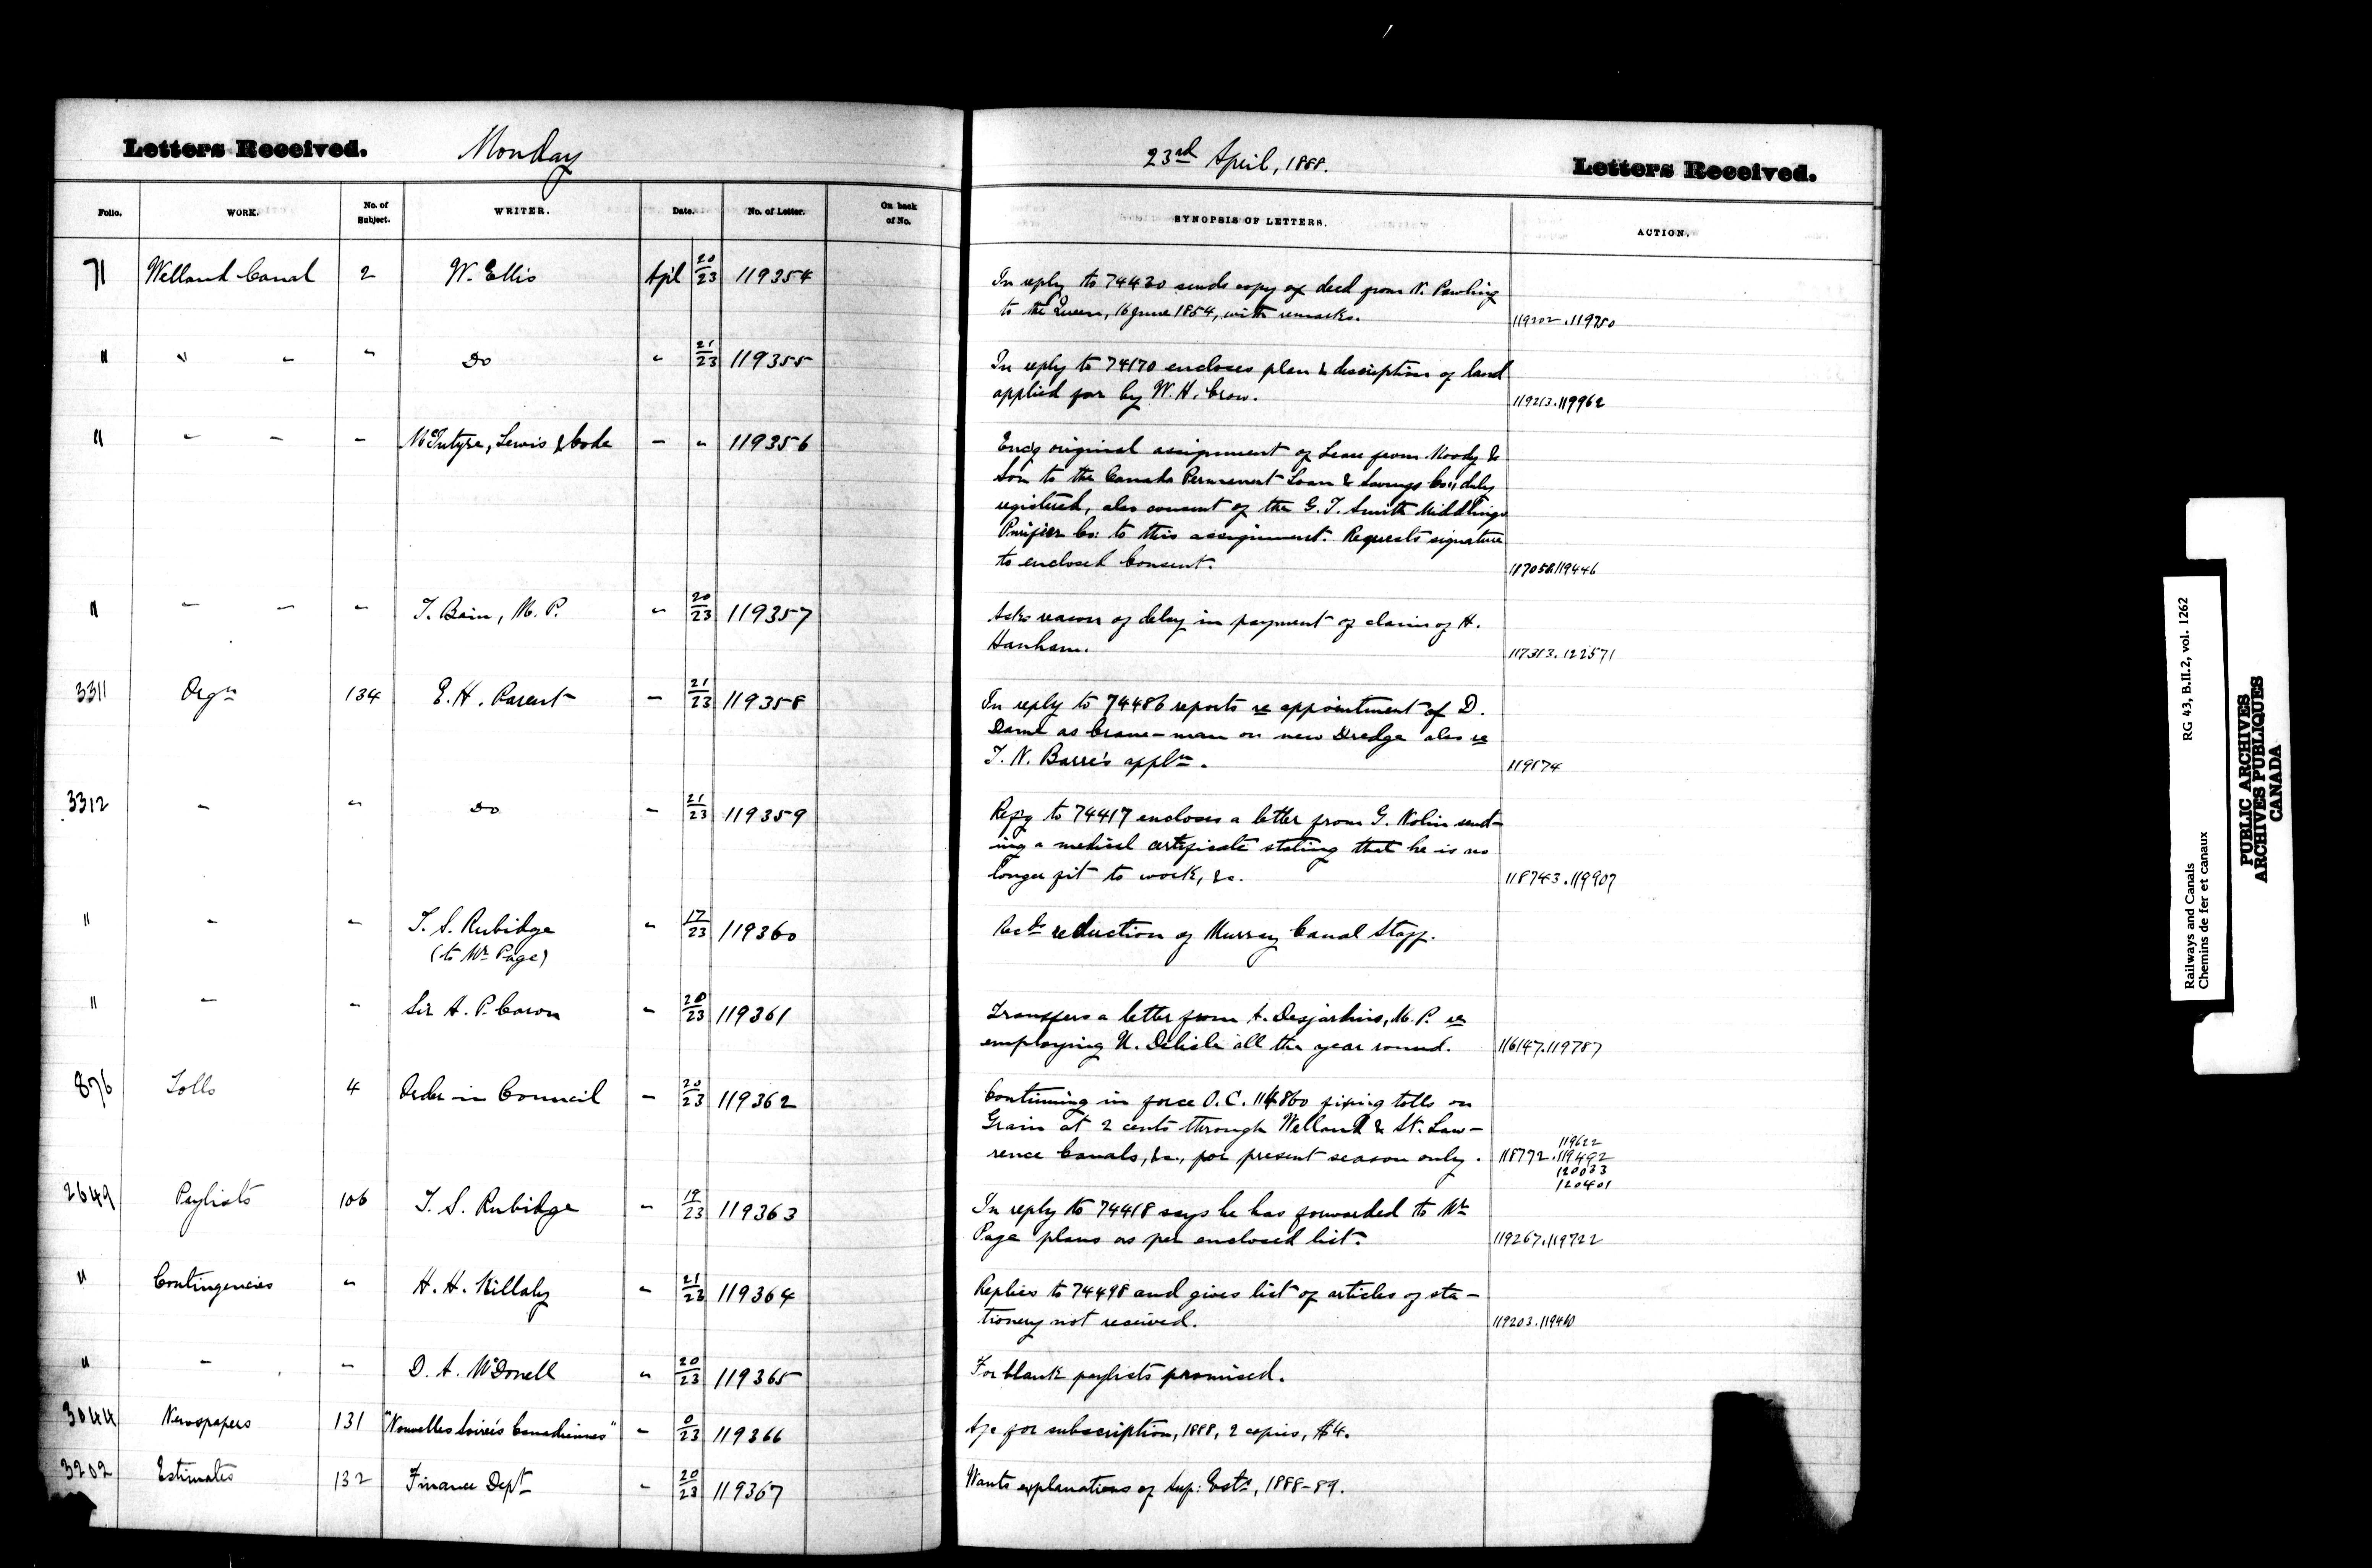 Letters Received. Monday
Folio. WORK. No. of Subject. WRITER. Date. No. of Letter. On back of No.
71 Welland Canal 2 W. Ellis Apl 20/23 119354
" " " " Do " 21/23 119355
" " " " McIntyre, Lewis & Code " " 119356
" " " " T. Bain, M.P. " 20/23 119357
3311 Orgn 134 E.H. Parent " 21/23 119358
3312 " " Do " 21/23 119359
" " " T.S. Rubidge " 17/23 119360
(to Mr Page)
" " " Sir A.P. Caron " 20/23 119361
876 Tolls 4 Order in Council " 20/23 119362
2649 Paylists 106 T.S. Rubidge " 19/23 119363
" Contingencies " H.H. Killaly " 21/23 119364
" " " D.A. McDonell " 20/23 119365
3044 Newspapers 131 "Nouvelles Soireés Canadiennes" " 0/23 119366
3202 Estimates 132 Finance Dept " 20/23 119367
23rd April, 1888. Letters Received.
SYNOPSIS OF LETTERS. ACTION.
In reply to 74430 sends copy of deed from N. Pawling
to the Queen, 16 June 1854, with remarks. 119202.119750
In reply to 74170 encloses plan & description of land
applied for by W.H. Crow. 119213.119962
Encg original assignment of Lease from Moody &
Son to the Canada Permanent Loan & Savings Co., duly
registered, also consent of the G.T. Smith Middlings
Purifier Co: to this assignment. Requests signature
to enclosed Consent. 117058.119446
Asks reason of delay in payment of claim of H.
Hanham. 117313.122571
In reply to 74486 reports re appointment of D.
Dame as Crane-man on new Dredge also re
T.N. Barre's appln. 119174
Repg to 74417 encloses a letter from G. Nolin send-
ing a medical certificate stating that he is no
longer fit to work, &c. 118743.119907
reduction of Murray Canal Staff.
Transfers a letter from A. Desjardins, M.P. re
employing N. Delisle all the year round. 116147.119787
Continuing in force O.C. 114860 fixing tolls on
Grain at 2 cents through Welland & St. Law-
rence Canals, &c., for present season only. 118772.119492
119622
120033
120401
In reply to 74418 says he has forwarded to Mr
Page plans as per enclosed list. 119267.119722
Replies to 74498 and gives list of articles of sta-
tionery not received. 119203.119460
For blank paylists promised.
A/c for subscription, 1888, 2 copies, $4.
Wants explanations of Sup: Ests, 1888-89.
Railways and Canals RG 43, B.II.2, vol. 1262
Chemins de fer et canaux
PUBLIC ARCHIVES
ARCHIVES PUBLIQUES
CANADA